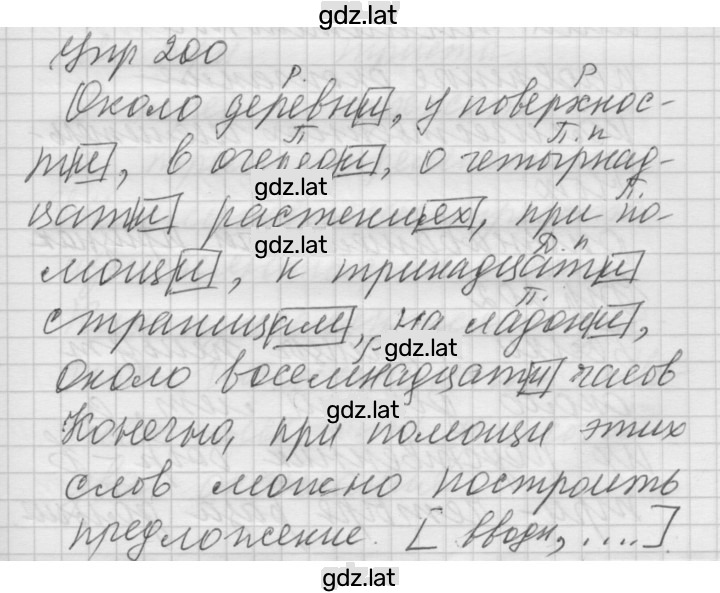 gdz.lat
Упр 200
Р. Р
Около деревни, у поверхнос-
П П. п
ти, в о, о четырнад-
gdz.lat
П.
цати растениях, при по-
gdz.lat
Д. п
мощи, к тринадцати
П.
страницам, на ладони,
gdz.lat
около восемнадцати часов
gdz.lat
Конечно, при помощи этих
слов можно построить
предложение. [ вводн, ....].
gdz.lat